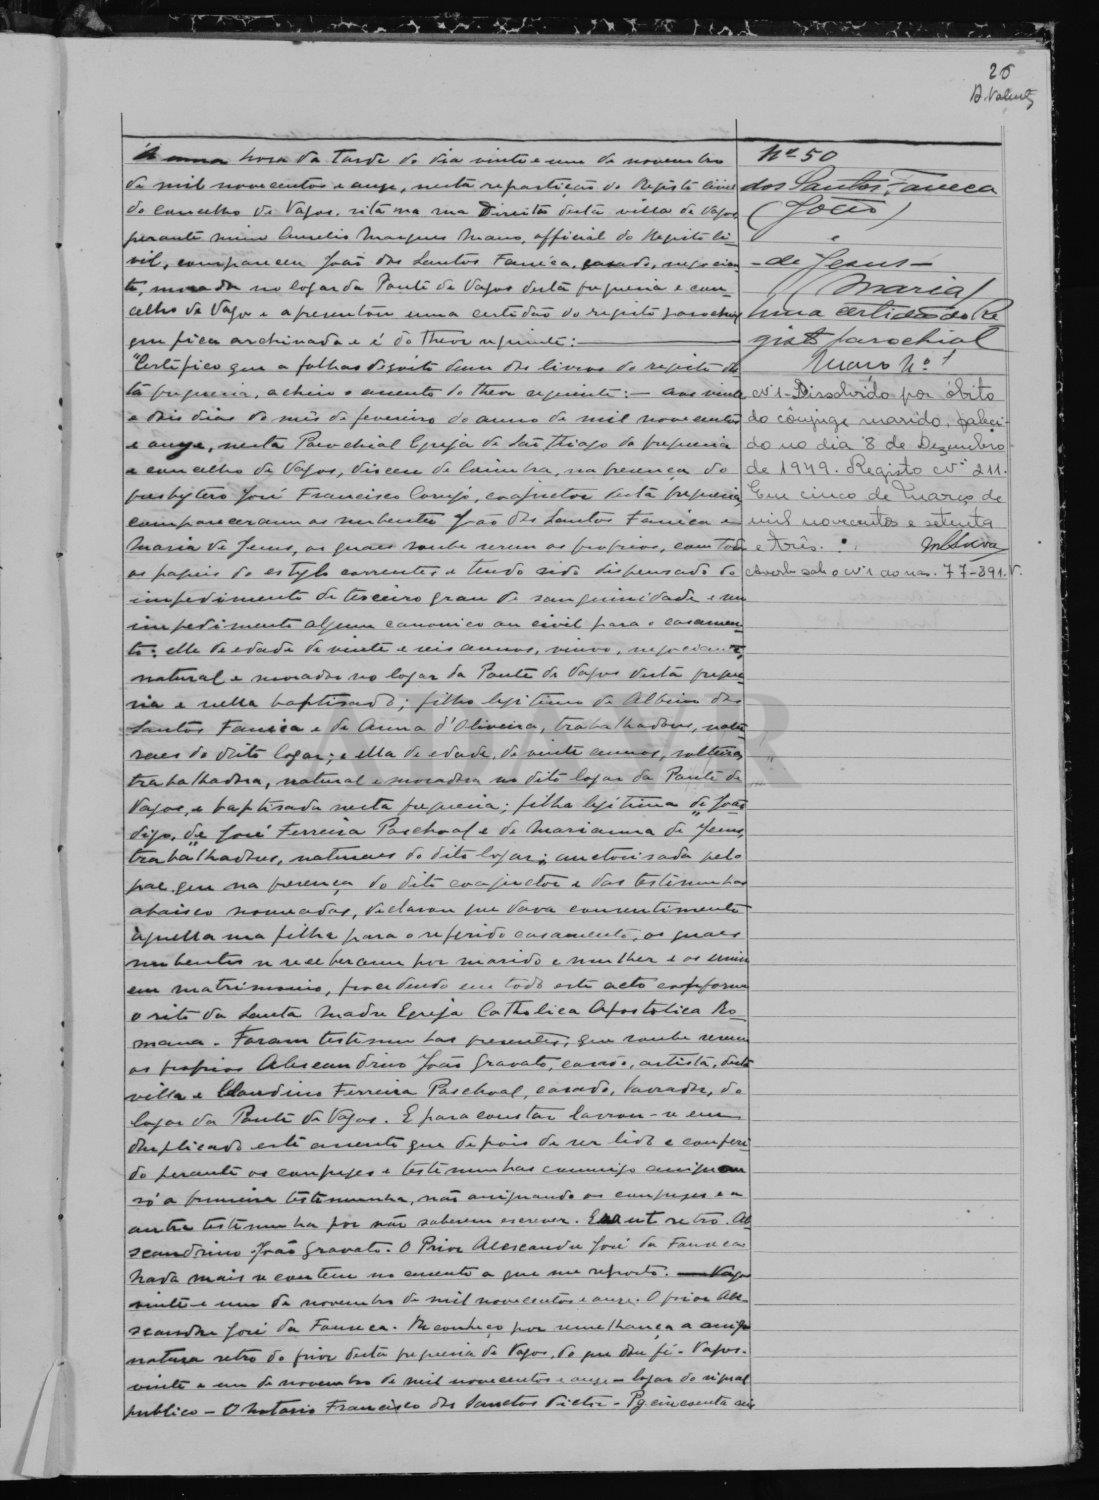 26
A. Valente
A uma hora da tarde do dia vinte e um de novembro
de mil novecentos e onze, nesta repartição do Registo civil
do concelho de Vagos, sita na rua Direita desta villa de Vagos
perante mim Aurelio Marques Mano, official do Registo ci-
vil, compareceu João dos Santos Faneca, casado, negocian
te, morador no logar da Ponte de Vagos desta freguesia e con-
celho de Vagos e apresentou uma certidão do registo parochial
que fica archivada e é do theor seguinte:
"Certifico que a folhas dezoito dum dos livros do registo des
ta freguesia, achei o assento do theor seguinte: - aos vinte
e dois dias do mês de fevereiro do anno de mil novecentos
e onze, nesta Parochial Egreja de São Thiago da freguesia
e concelho de Vagos, diocese de Coimbra, na presença do
presbytero José Francisco Corujo, coajuctor desta freguesia,
compareceram os nubentes João dos Santos Faneca e
Maria de Jesus, os quaes soube serem os proprios, com todos
os papeis do estylo correntes e tendo sido dispensado do
impedimento de terceiro grau de sanguinidade e sem
impedimento algum canonico ou civil para o casamen-
to; elle de edade de vinte e seis annos, viuvo, negociante,
natural e morador no logar da Ponte de Vagos desta fregue-
sia e nella baptisado; filho legitimo de Albino dos
Santos Faneca e de Anna d'Oliveira, trabalhadores, natu
raes do dito logar; e ella de edade, de vinte annos, solteira,
trabalhadora, natural e moradora no dito logar da Ponte de
Vagos, e baptisada nesta freguesia; filha legitima "de João"
digo, de José Ferreira Paschoal e de Marianna de Jesus,
trabalhadores, naturaes do dito logar; auctorisada pelo
pae que na presença do dito coajuctor e das testemunhas
abaixo nomeadas, declarou que dava consentimento
àquella sua filha para o referido casamento, os quaes
nubentes se receberam por marido e mulher e os uniu
em matrimonio, procedendo em todo este acto conforme
o rito da Santa Madre Egreja Catholica Apostolica Ro-
mana. Foram testemunhas presentes, que soube serem
os proprios Alexandrino João Gravato, casado, artista, desta
villa e Claudino Ferreira Paschoal, casado, lavrador, do
logar da Ponte de Vagos. E para constar lavrou-se em
duplicado este assento que depois de ser lido e conferi-
do perante os conjuges e testemunhas commigo assignou
só a primeira testemunha, não assignando os conjuges e a
outra testemunha por não saberem escrever. Era ut retro. Ale
xandrino João Gravato. O Prior Alexandre José da Fonseca
Nada mais se contem no assento a que me reporto. Vagos
vinte e um de novembro de mil novecentos e onze. O prior Ale-
xandre José da Fonseca. Reconheço por semelhança a assig-
natura retro do prior desta freguesia de Vagos, do que dou fé. Vagos.
vinte e um de novembro de mil novecentos e onze - logar do signal
publico - O Notario Francisco dos Sanctos Victor - Pg. cincoenta reis
Nº 50
dos Santos Faneca
(João)
e
-de Jesus-
(Maria)
Uma certidão do Re
gisto parochial
Maço Nº 1
Nº 1 - Dissolvido por óbito
do cônjuge marido, faleci-
do no dia 8 de Dezembro
de 1949. Registo Nº 211.
Em cinco de Março de
mil novecentos e setenta
e três.
Averb. sob o Nº 1 ao 77-391.